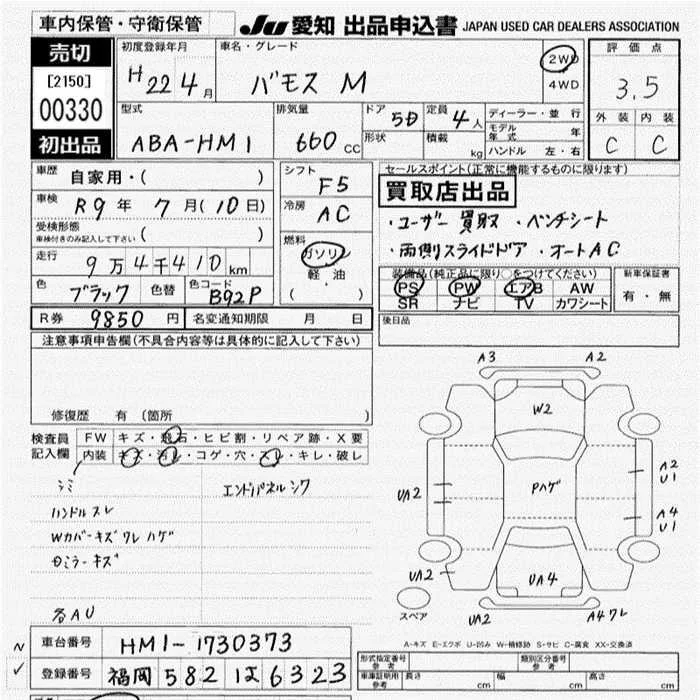 車内保管・守衛保管
JU 愛知 出品申込書 JAPAN USED CAR DEALERS ASSOCIATION
売切
[2150]
00330
初出品
初度登録年月 車名・グレード 評価点
H22 4月 バモス M 2WD 4WD 3.5
型式 排気量 ドア 定員 ディーラー・並行 外装 内装
ABA-HM1 660 CC 5D 4人 モデル年式 年 C C
形状 積載 kg ハンドル 左・右
車歴 自家用・( )
シフト F5
セールスポイント(正常に機能するものに限ります)
買取店出品
車検 R9年 7月(10日)
冷房 AC
・ユーザー買取 ・ベンチシート
受検形態 ( )
車検付きのみ記入して下さい
・両側スライドドア ・オートAC
走行 9万4千410km
燃料 ガソリン 軽油 ( )
装備品(純正品に限り○をつけてください) 新車保証書
色 ブラック 色替 色コード B92P
PS PW エアB AW 有・無
SR ナビ TV カワシート
R券 9850円 名変通知期限 月 日
後日品
注意事項申告欄(不具合内容等は具体的に記入して下さい)
修復歴 有(箇所 )
検査員記入欄 FW キズ・飛石・ヒビ割・リペア跡・X要
内装 キズ・汚レ・コゲ・穴・スレ・キレ・破レ
シミ エンドパネルシワ
ハンドルスレ
Wカバーキズ ワレ ハゲ
ミラーキズ
各AU
A3 A2
W2
A2
U1
UA2 Pハゲ
A4
U1
UA2 UA4
スペア UA2 A4ワレ
A-キズ E-エクボ U-凹み W-補修跡 S-サビ C-腐食 XX-交換済
車台番号 HM1-1730373
登録番号 福岡 582 は 6323
形式指定番号 参考 類別区分番号 参考
車庫証明用 参考 長さ cm 幅 cm 高さ cm